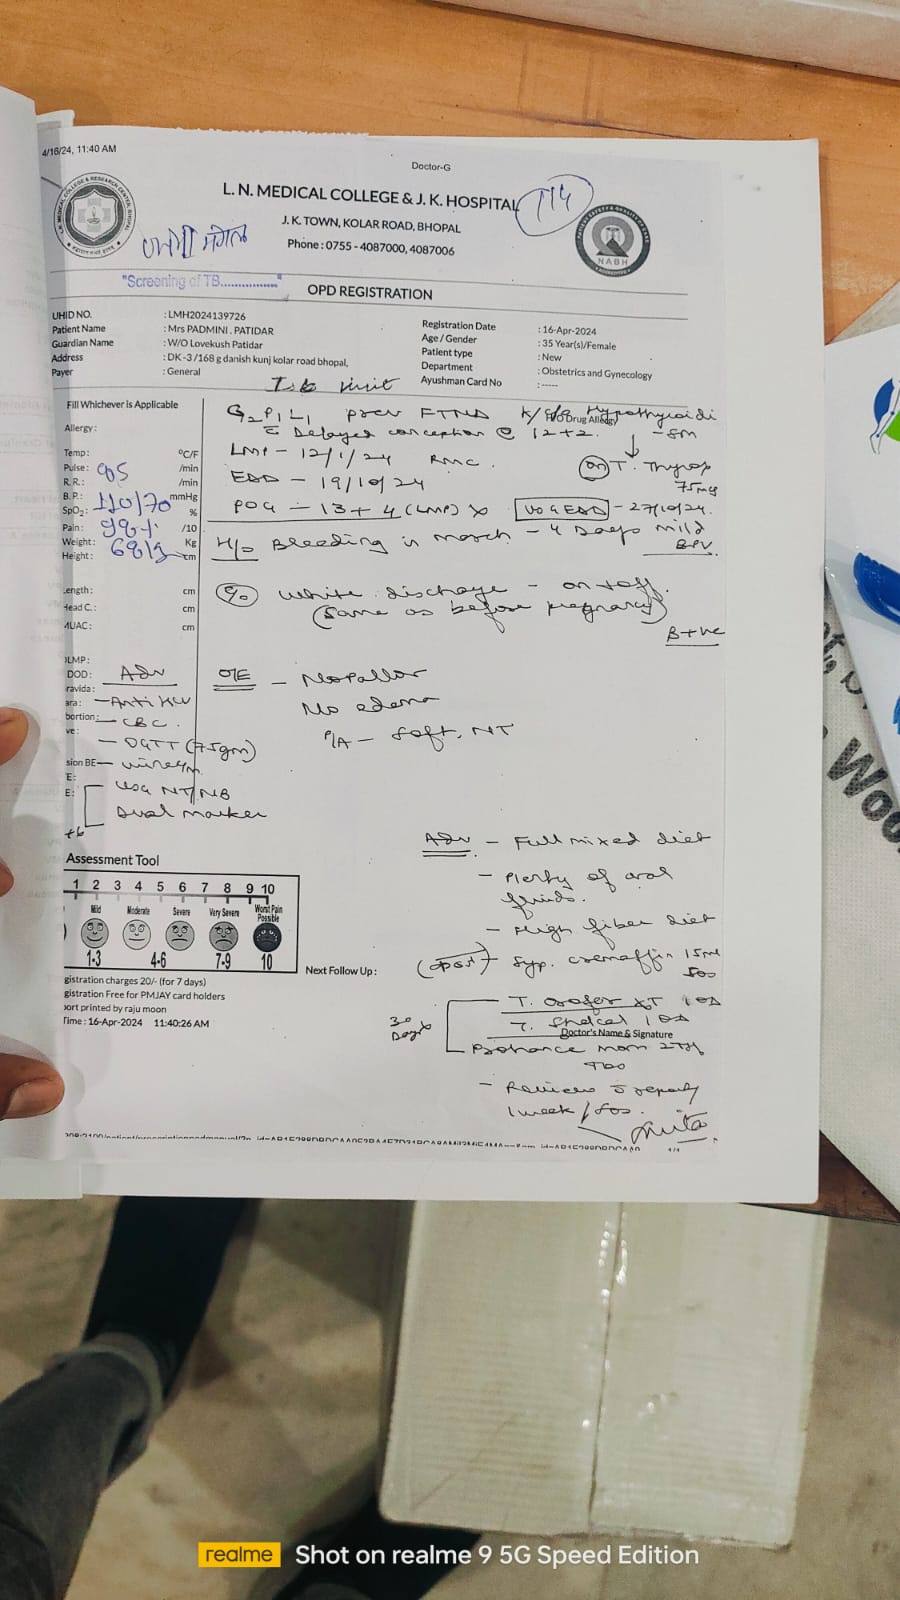 4/16/24, 11:40 AM
Doctor-G
L. N. MEDICAL COLLEGE & J. K. HOSPITAL
J. K. TOWN, KOLAR ROAD, BHOPAL
Phone : 0755 - 4087000, 4087006
NABH
"Screening of TB................"
OPD REGISTRATION
UHID NO. : LMH2024139726
Patient Name : Mrs PADMINI . PATIDAR
Guardian Name : W/O Lovekush Patidar
Address : DK-3 /168 g danish kunj kolar road bhopal,
Payer : General
Registration Date : 16-Apr-2024
Age / Gender : 35 Year(s)/Female
Patient type : New
Department : Obstetrics and Gynecology
Ayushman Card No : -----
Ist visit
Fill Whichever is Applicable
Allergy :
Temp: °C/F
Pulse: /min
R. R.: /min
B. P.: 110/70 mmHg
SpO2: %
Pain: /10
Weight: Kg
Height: cm
ength: cm
Head C.: cm
MUAC: cm
G2P1L1 prev FTND K/c/o Hypothyroidi
H/O Drug Allergy
Delayed conception @ 12+2. - 8m
LMP - 12/1/24
on T. Thyrop 75mcg
EDD - 19/10/24
POG - 13+4 (LMP) USG EDD - 27/10/24.
H/o Bleeding in march - 4 Days mild BPV
C/o White discharge - on & off.
(same as before pregnancy)
B+ve
LMP:
DOD: Adv
ravida:
ara: - Anti HCV
bortion: - CBC.
ve: - OGTT (75gm)
sion BE - urine r/m.
E:
E: USG NT/NB
Dual marker
O/E - No pallor
No edema
P/A - Soft, NT
Adv - Full mixed diet
- Plenty of oral fluids.
- High fiber diet
Assessment Tool
1 2 3 4 5 6 7 8 9 10
Mild Moderate Severe Very Severe Worst Pain Possible
1-3 4-6 7-9 10
Next Follow Up :
Syp. cremaffin 15ml sos
gistration charges 20/- (for 7 days)
gistration Free for PMJAY card holders
port printed by raju moon
Time : 16-Apr-2024 11:40:26 AM
30 Days
T. orofer XT 1 OD
T. Shelcal 1 OD
Doctor's Name & Signature
Prohance mom 2TSF
TDS
- Review c reports
1 week / sos.
1/1
realme Shot on realme 9 5G Speed Edition